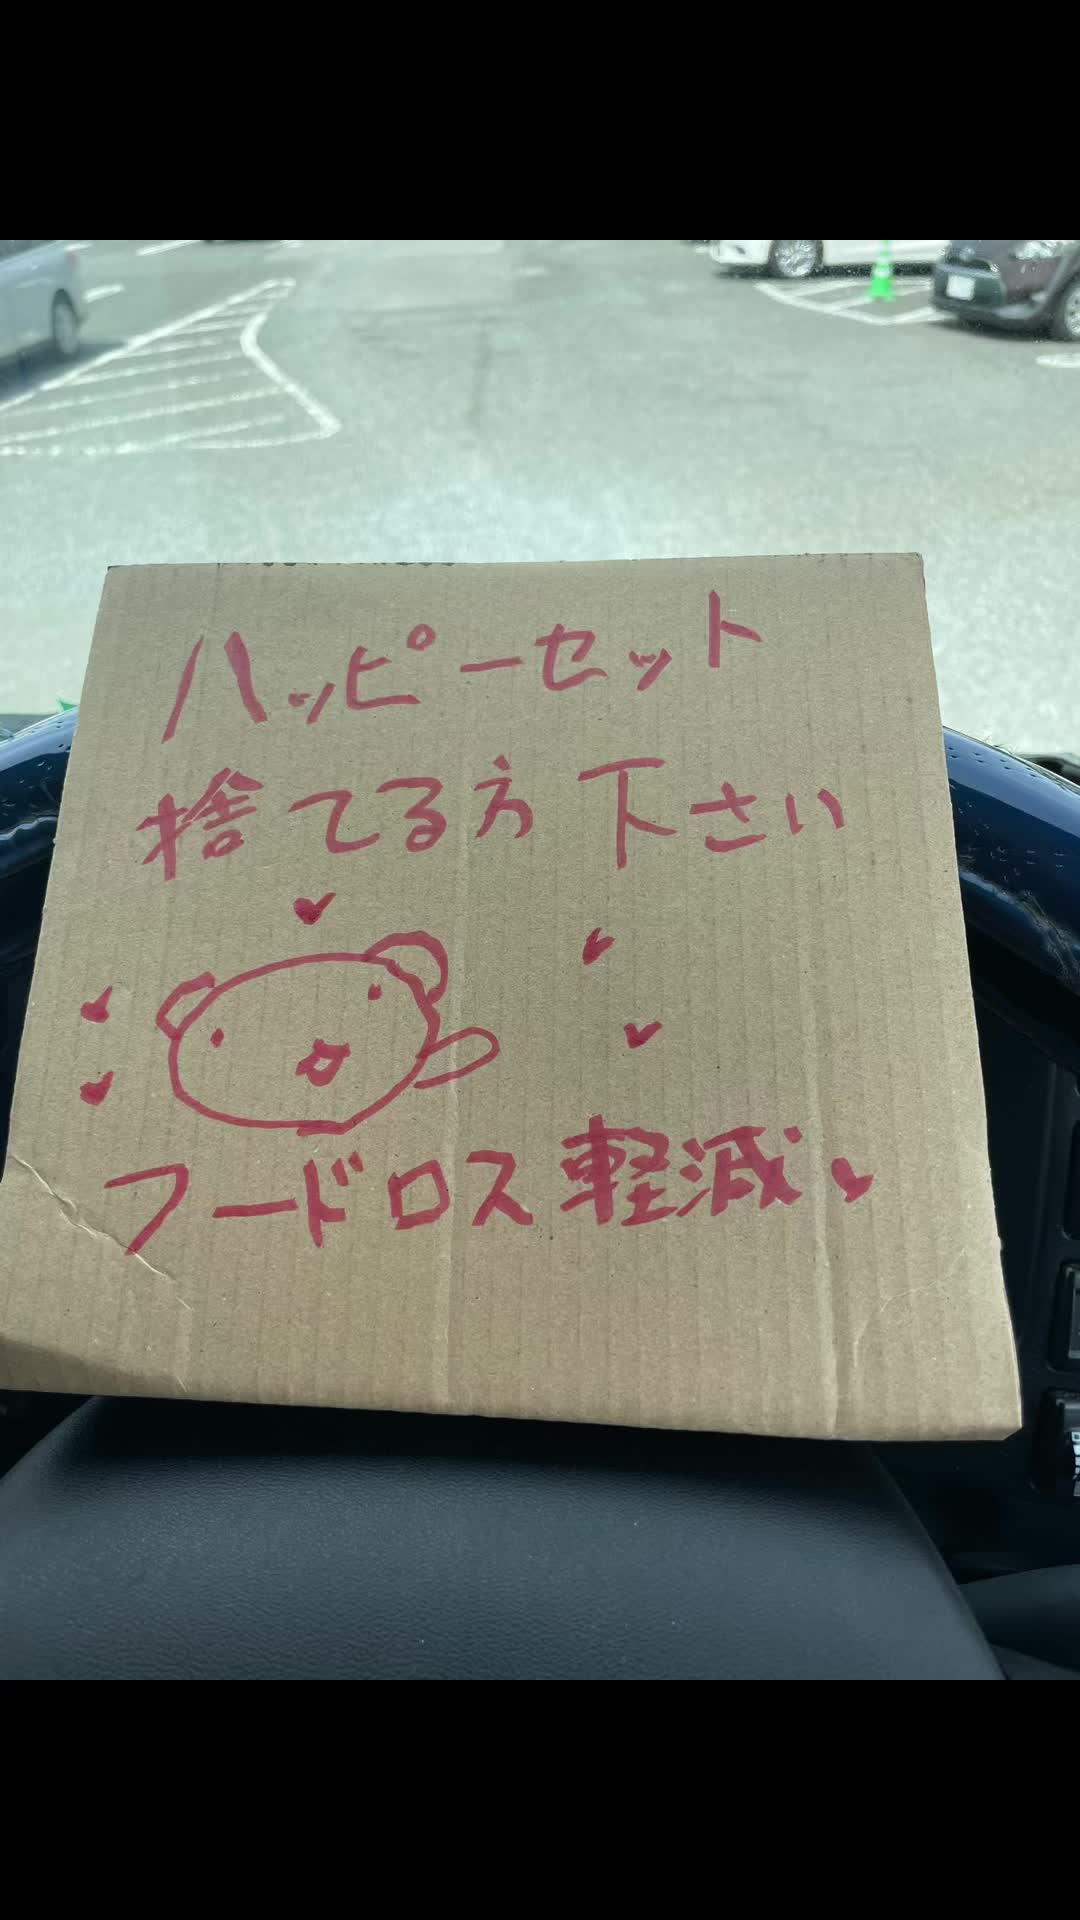 ハッピーセット
捨てる方下さい
フードロス軽減